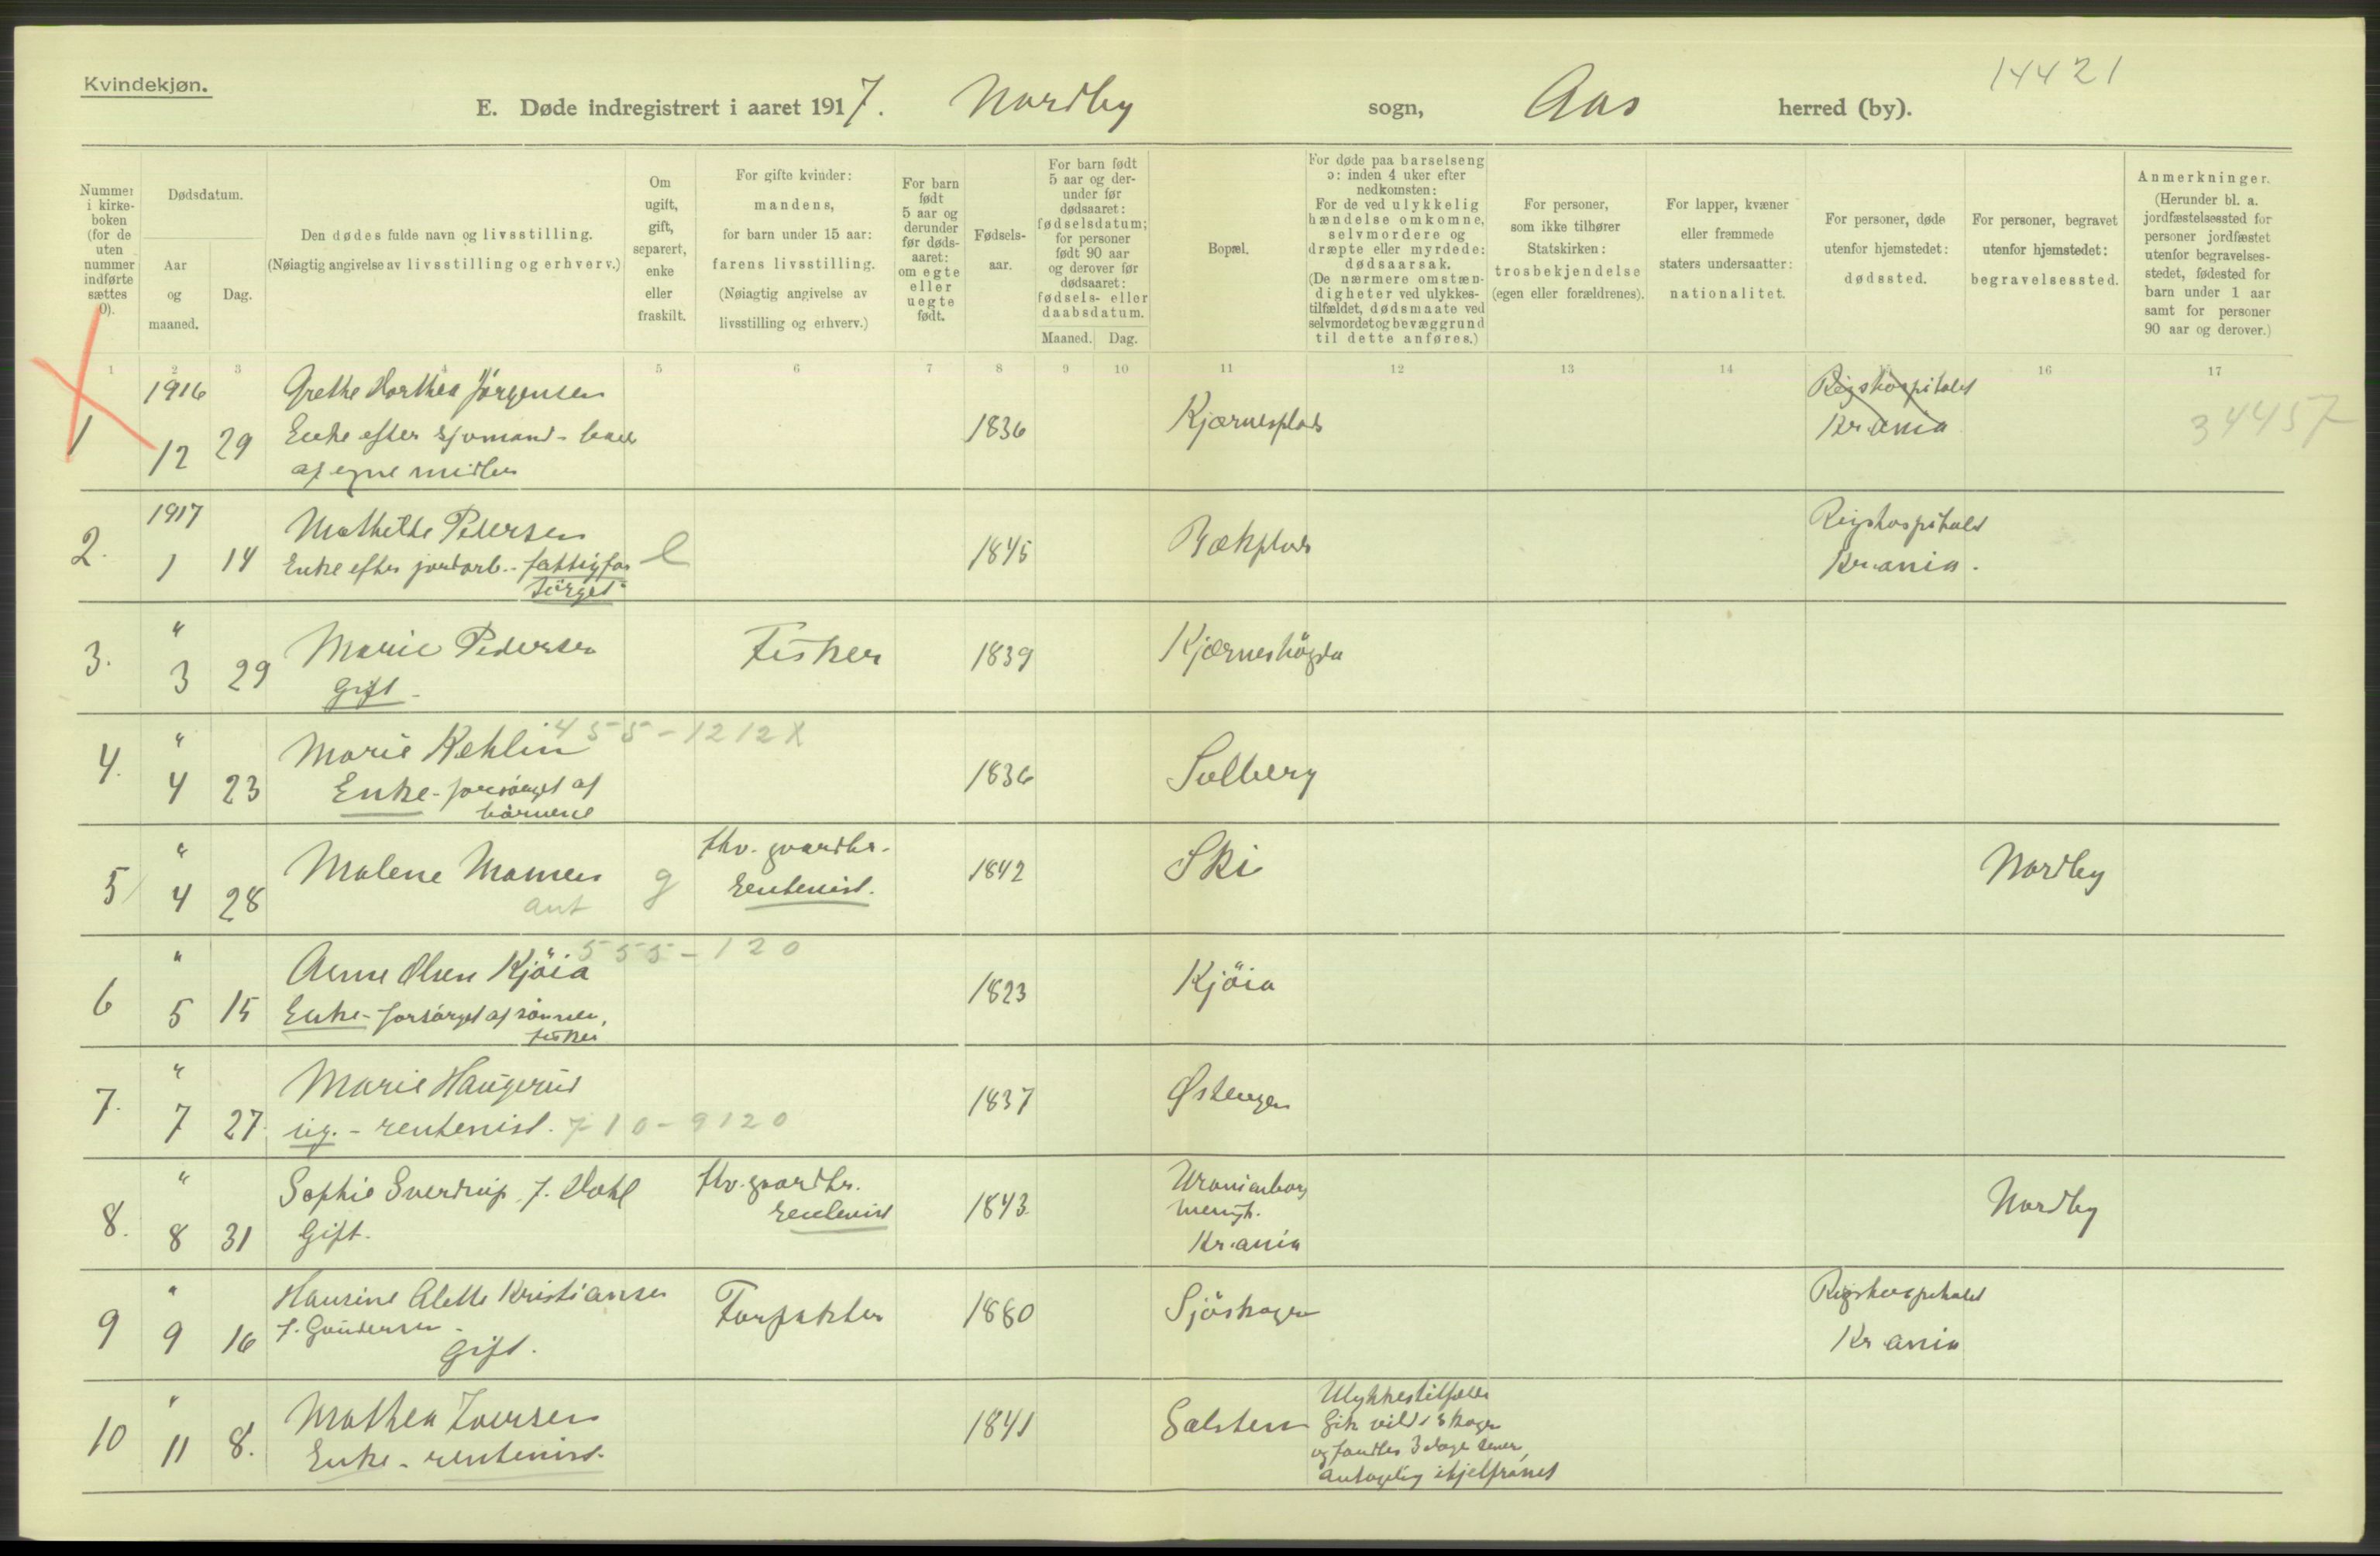 Kvindekjøn.
14421
E. Døde indregistrert i aaret 1917. Nordby sogn, Aas herred (by).
Nummer i kirkeboken (for de uten nummer indførte sættes 0).
Dødsdatum.
Aar og maaned.
Dag.
Den dødes fulde navn og livsstilling.
(Nøiagtig angivelse av livsstilling og erhverv.)
Om ugift, gift, separert, enke eller fraskilt.
For gifte kvinder: mandens, for barn under 15 aar: farens livsstilling.
(Nøiagtig angivelse av livsstilling og erhverv.)
For barn født 5 aar og derunder før dødsaaret: om egte eller uegte født.
Fødselsaar.
For barn født 5 aar og derunder før dødsaaret: fødselsdatum; for personer født 90 aar og derover før dødsaaret: fødsels- eller daabsdatum.
Maaned. Dag.
Bopæl.
For døde paa barselseng ɔ: inden 4 uker efter nedkomsten:
For de ved ulykkelig hændelse omkomne, selvmordere og dræpte eller myrdede: dødsaarsak.
(De nærmere omstændigheter ved ulykkestilfældet, dødsmaate ved selvmordet og bevæggrund til dette anføres.)
For personer, som ikke tilhører Statskirken: trosbekjendelse (egen eller forældrenes).
For lapper, kvæner eller fremmede staters undersaatter: nationalitet.
For personer, døde utenfor hjemstedet: dødssted.
For personer, begravet utenfor hjemstedet: begravelsessted.
Anmerkninger.
(Herunder bl. a. jordfæstelsessted for personer jordfæstet utenfor begravelsesstedet, fødested for barn under 1 aar samt for personer 90 aar og derover.)
1 2 3 4 5 6 7 8 9 10 11 12 13 14 15 16 17
1 1916 12 29 Grethe Dorthea Jørgensen
Enke efter sjømand - 
af egne midler
1836 Kjærnesplads Rigshospitalet
Kr.ania
34457
2. 1917 1 14 Mathilde Pedersen
Enke efter jordarb. - fattigfor
sørget
e 1845 Bækplads Rigshospitalet
Kr.ania.
3. " 3 29 Marie Pedersen
Gift.
Fisker 1839 Kjærneshögda
4. " 4 23 Marie Kehlin 455-1212X
Enke - forsørget af
børnene
1836 Solberg
5 " 4 28 Malene Mamen
ant
g fhv. gaardbr.
rentenist.
1842 Ski Nordby
6 " 5 15 Anne Olsen Kjöia 555-120
Enke - forsørget af sönnen,
fisker
1823 Kjöia
7. " 7 27 Marie Haugerud
ug. - rentenist. 710-9120
1837 Østengen
8. " 8 31 Sophie Sverdrup f. Dahl
Gift.
fhv. gaardbr.
rentenist
1843 Uranienborg
menigh.
Kr.ania
Nordby
9 " 9 16 Hansine Alette Kristiansen
f. Gundersen
Gift.
Forpakter 1880 Sjöskogen Rigshospitalet
Kr.ania
10 " 11 8. Mathea Iversen
Enke - rentenist.
1841 Galsten Ulykkestilfælde
Gik vild i skogen
og fandtes 3 dage senere,
antagelig ihjelfrosset